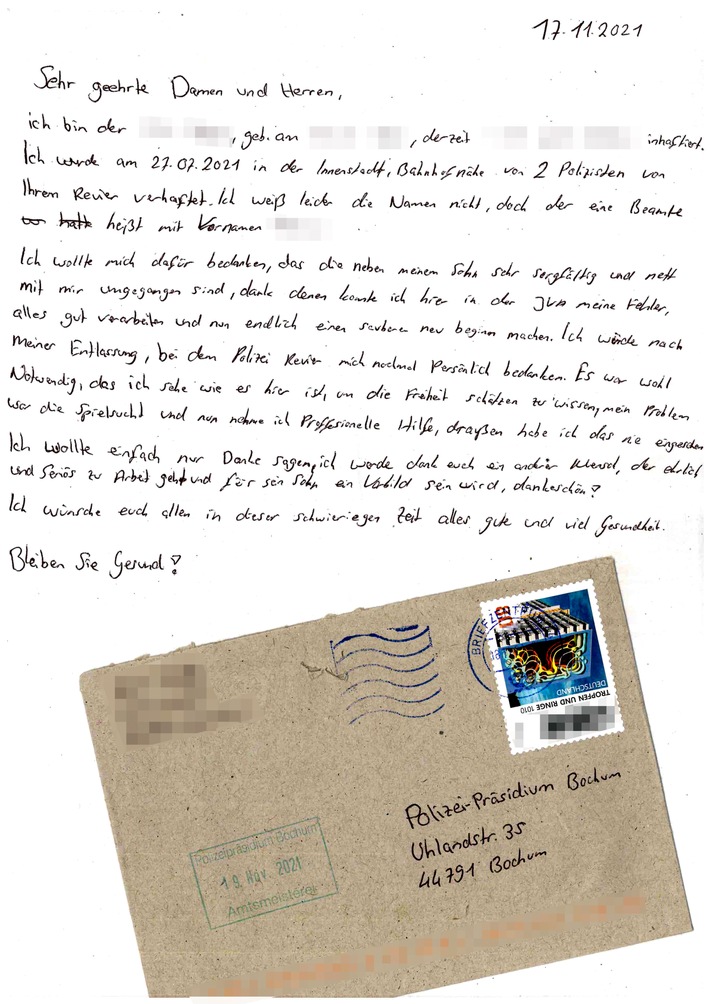 17.11.2021
Sehr geehrte Damen und Herren,
ich bin der , geb. am , derzeit inhaftiert.
Ich wurde am 27.07.2021 in der Innenstadt, Bahnhofnähe von 2 Polizisten von
Ihrem Revier verhaftet. Ich weiß leider die Namen nicht, doch der eine Beamte
heißt mit Vornamen
Ich wollte mich dafür bedanken, das die neben meinem Sohn sehr sorgfältig und nett
mit mir umgegangen sind, dank denen konnte ich hier in der JVA meine Fehler,
alles gut verarbeiten und nun endlich einen sauberen neu beginn machen. Ich würde nach
meiner Entlassung, bei dem Polizei Revier mich nochmal Persönlich bedanken. Es war wohl
Notwendig, das ich sehe wie es hier ist, um die Freiheit schätzen zu wissen, mein Problem
war die Spielsucht und nun nehme ich Proffesionelle Hilfe, draußen habe ich das nie eingesehen
Ich wollte einfach nur Danke sagen, ich werde dank euch ein andrer Mensch, der ehrlich
und Seriös zu Arbeit geht und für sein Sohn ein Vorbild sein wird, dankeschön!
Ich wünsche euch allen in dieser schwieriegen Zeit alles gute und viel Gesundheit.
Bleiben Sie Gesund!
BRIEFZENTRUM
DEUTSCHLAND
TROPFEN UND RINGE 1010
Polizei-Präsidium Bochum
Uhlandstr. 35
44791 Bochum
Polizeipräsidium Bochum
19. Nov. 2021
Amtsmeisterei